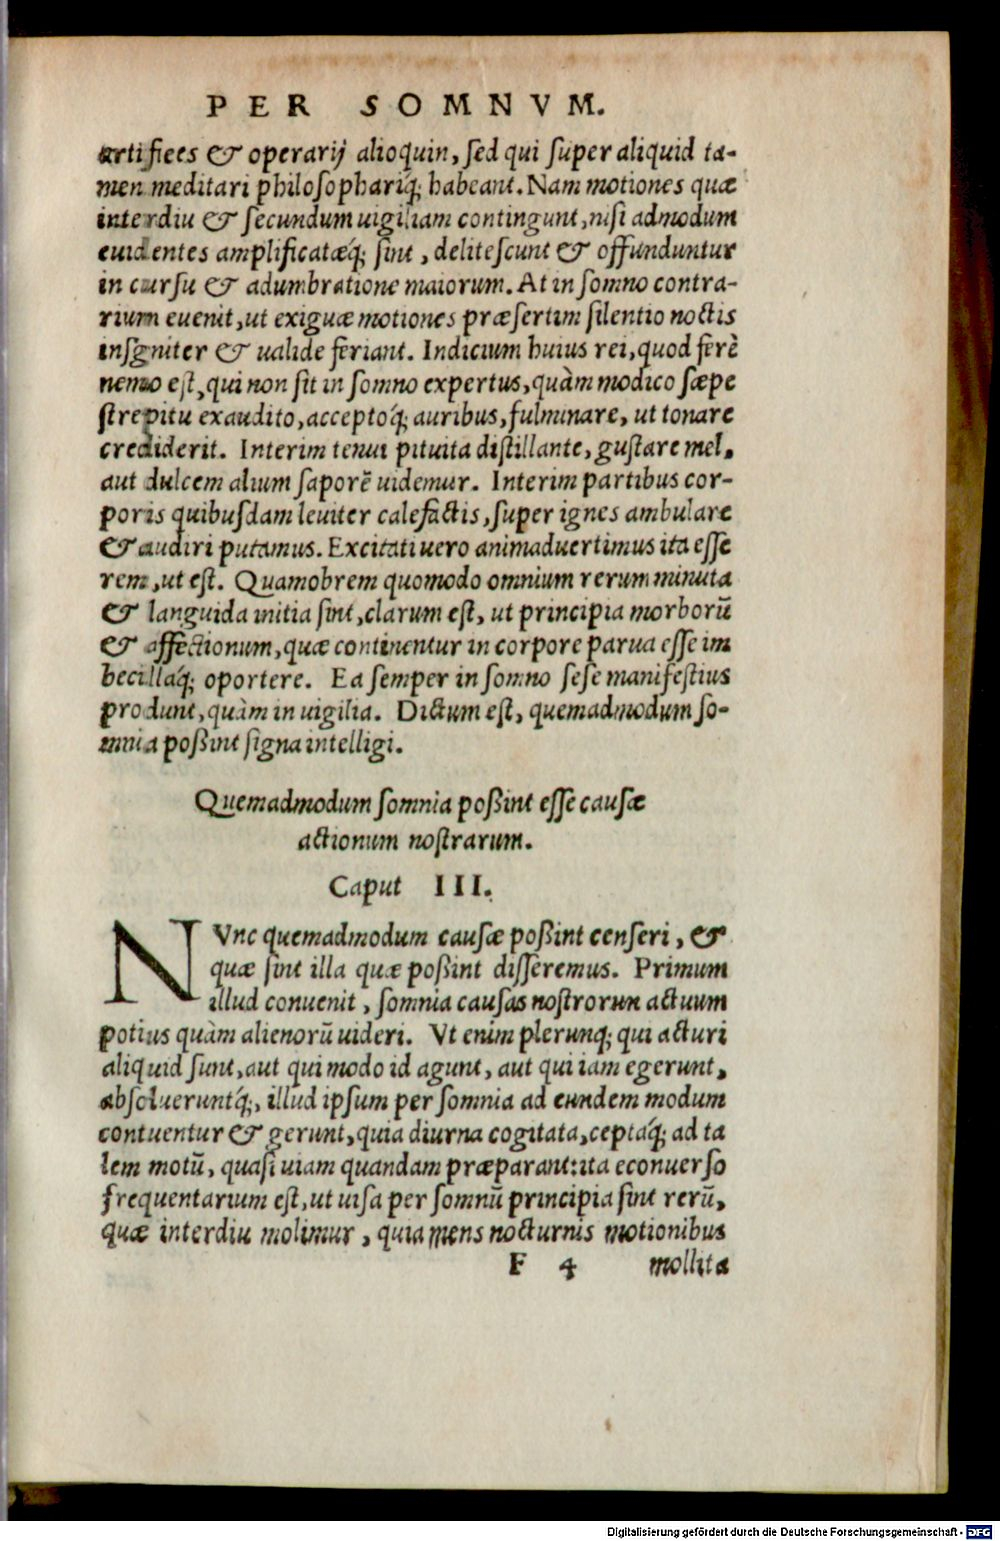 PER SOMNVM.
artifices & operarij alioquin, sed qui super aliquid ta-
men meditari philosophariq́; habeant. Nam motiones quæ
interdiu & secundum uigiliam contingunt, nisi admodum
euidentes amplificatæq́; sint, delitescunt & offunduntur
in cursu & adumbratione maiorum. At in somno contra-
rium euenit, ut exiguæ motiones præsertim silentio noctis
insigniter & ualide feriant. Indicium huius rei, quod ferè
nemo est, qui non sit in somno expertus, quàm modico sæpe
strepitu exaudito, acceptoq́; auribus, fulminare, ut tonare
crediderit. Interim tenui pituita distillante, gustare mel,
aut dulcem alium saporē uidemur. Interim partibus cor-
poris quibusdam leuiter calefactis, super ignes ambulare
& audiri putamus. Excitati uero animaduertimus ita esse
rem, ut est. Quamobrem quomodo omnium rerum minuta
& languida initia sint, clarum est, ut principia morborū
& affectionum, quæ continentur in corpore parua esse im
becillaq́; oportere. Ea semper in somno sese manifestius
produnt, quàm in uigilia. Dictum est, quemadmodum so-
mnia poßint signa intelligi.
Quemadmodum somnia poßint esse causæ
actionum nostrarum.
Caput III.
NVnc quemadmodum causæ poßint censeri, &
quæ sint illa quæ poßint disseremus. Primum
illud conuenit, somnia causas nostrorun actuum
potius quàm alienorū uideri. Vt enim plerunq; qui acturi
aliquid sunt, aut qui modo id agunt, aut qui iam egerunt,
absolueruntq́;, illud ipsum per somnia ad eundem modum
contuentur & gerunt, quia diurna cogitata, ceptaq́; ad ta
lem motū, quasi uiam quandam præparant: ita econuerso
frequentarium est, ut uisa per somnū principia sint rerū,
quæ interdiu molimur, quia mens nocturnis motionibus
F 4 mollita
Digitalisierung gefördert durch die Deutsche Forschungsgemeinschaft - DFG